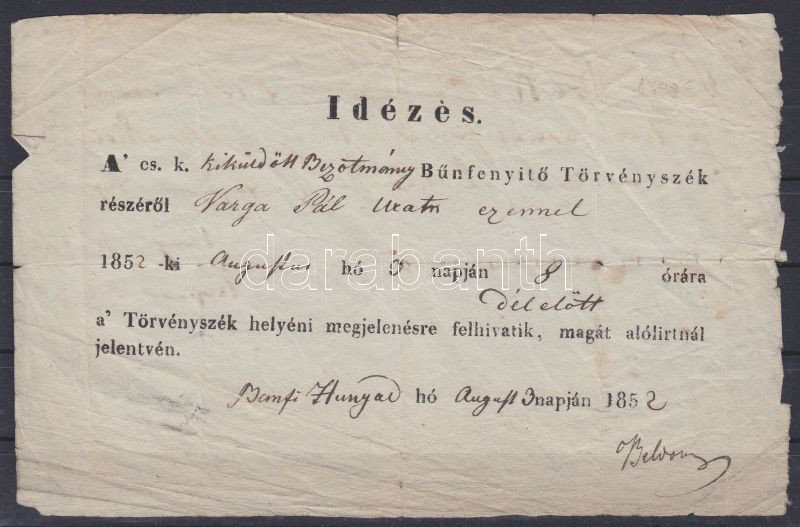 Idézès.
A' cs. k. kiküldött Bizotmány Bűnfenyitő Törvényszék
részéről Varga Pál Urat ezennel
1852-ki Augustus hó 5 napján 8 órára
délelőtt
a' Törvényszék helyéni megjelenésre felhivatik, magát alólirtnál
jelentvén.
Banfi Hunyad hó August 3 napján 1852
darabanth